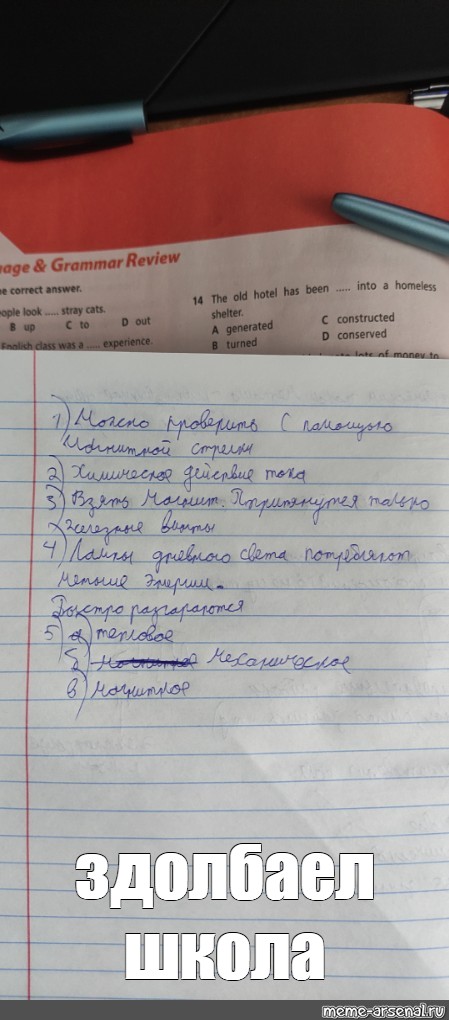 uage & Grammar Review
e correct answer.
ople look ..... stray cats.
B up C to D out
English class was a ..... experience.
14 The old hotel has been ..... into a homeless
shelter.
A generated C constructed
B turned D conserved
lots of money to
1) Можно проверить с помощью
магнитной стрелки
2) Химическое действие тока
3) Взять магнит. Притянутся только
железные винты
4) Лампы дневного света потребляют
меньше энергии.
Быстро разгораются
5) а) тепловое
б) механическое
в) магнитное
здолбаел
школа
meme-arsenal.ru